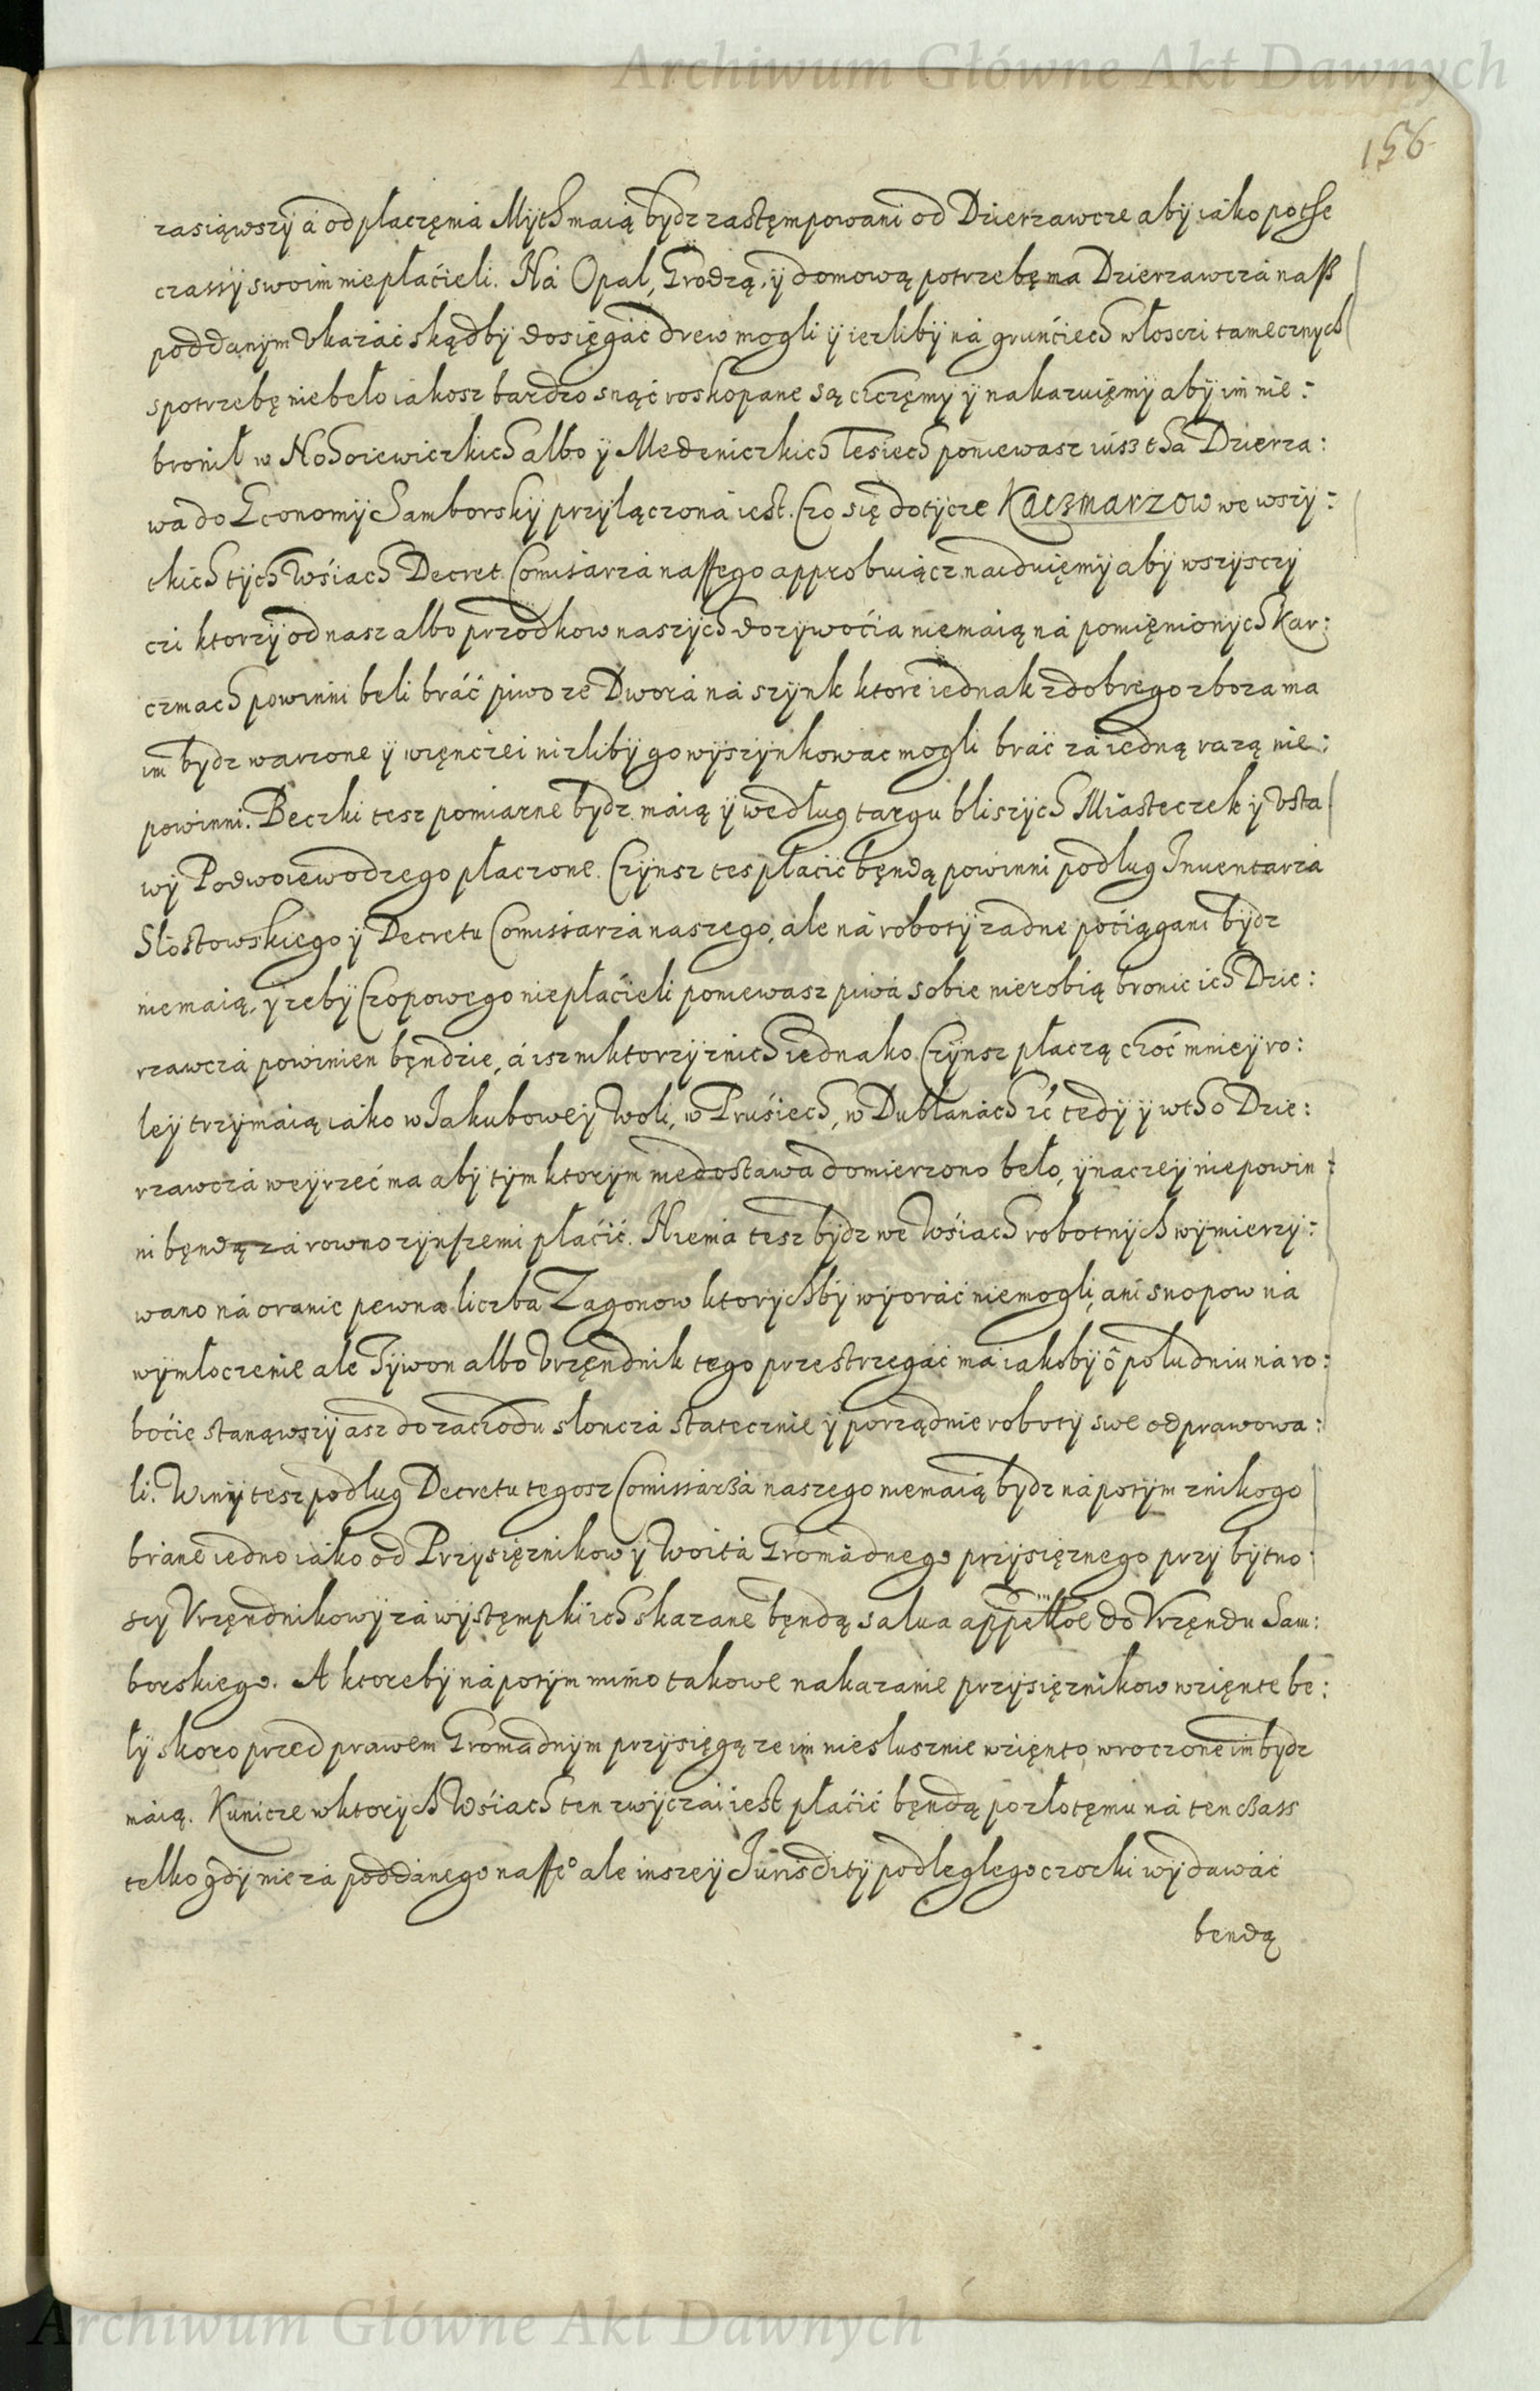 Archiwum Główne Akt Dawnych
156
zasiąwszy á od płaczęnia Myth maią bydz zastęmpowani od Dzierzawcze aby iáko po the
czassy swoim nie płaćieli. Ná Opal, Grodzą, y domową potrzebę ma Dzierzawczá nass
poddanym Vkazáć skądby dosięgáć drew mogli y iezliby ná grunćiech włosczi tamecznych
s potrzebę nie beło iakosz bardzo snąć roskopane są chczęmy y nakazuięmy aby im nie :
bronił w albo y Medeniczkich lesiech poniewasz iusz tha Dzierza :
wa do Economÿ Samborsky przyłączoná iest. Czo się dotycze Kaczmarzow we wszy :
tkich tych Wśiach Decret Comisarzá nassego approbuiącz naiduięmy aby wszysczy
czi ktorzy od nasz albo przodkow naszych dozywoćia nie maią ná pomięnionych Kar :
czmach powinni beli bráć piwo ze Dworá ná szynk ktore iednak z dobrego zboza ma
im bydz warzone y więnczei nizliby go wyszynkowac mogli bráć zá iedną razą nie :
powinni. Beczki tesz pomiarne bydz máią y według targu bliszych Miásteczek y Vsta
wy Podwoiewodzego płaczone. Czynsz tes płacić będą powinni podług Inuentarzá
Slostowskiego y Decretu Comissarzá naszego, ale ná roboty zadne poćiągani bydz
nie maią, y zeby Czopowego nie płaćieli poniewasz piwá sobie nie robią bronic ich Dzie :
rzawczá powinien będzie, á isz niktorzy z nich iednako Czynsz płaczą choć mniey ro :
ley trzymaią iako w Jakubowey Woli, w Pruśiech, w Dublanách tedy y w tho Dzie :
rzawczá weyrzeć ma aby tym ktorym niedostawa domierzono beło, ynaczey nie powin :
ni będą zá rowno z ynszemi płaćić. Niema tesz bydz we Wśiach robotnych wymierzy :
wano ná oranie pewna liczba Zagonow ktorychby wyoráć nie mogli, ani snopow ná
wymłoczenie ale Tywon albo Vrzęndnik tego przestrzegáć má iakoby o południu ná ro :
boćie stanąwszy asz do zachodu słonczá statecznie y porządnie roboty swe odprawowa :
li. Winy tesz podług Decretu tegosz Comissarzá naszego nie maią bydz ná potym z nikogo
bráne iedno iáko od Przysięznikow y Woitá Gromádnego przysięznego przy bytno
scy Vrzęndnikowy zá wystęmpki ich skazane będą salua do Vrzęndu Sam :
borskiego. A ktoreby ná potym mimo takowe nakazanie przysięznikow wzięnte be :
ły skoro przed prawem Gromadnym przysięgą ze im nieslusznie wzięnto, wroczone im bydz
máią. Kunicze w ktorych Wśiach ten zwyczai iest płaćić będą po złotęmu ná ten czass
telko gdy nie zá poddánego nass° ale inszey Jurisdity podległego czorki wydawáć
bendą
Archiwum Główne Akt Dawnych